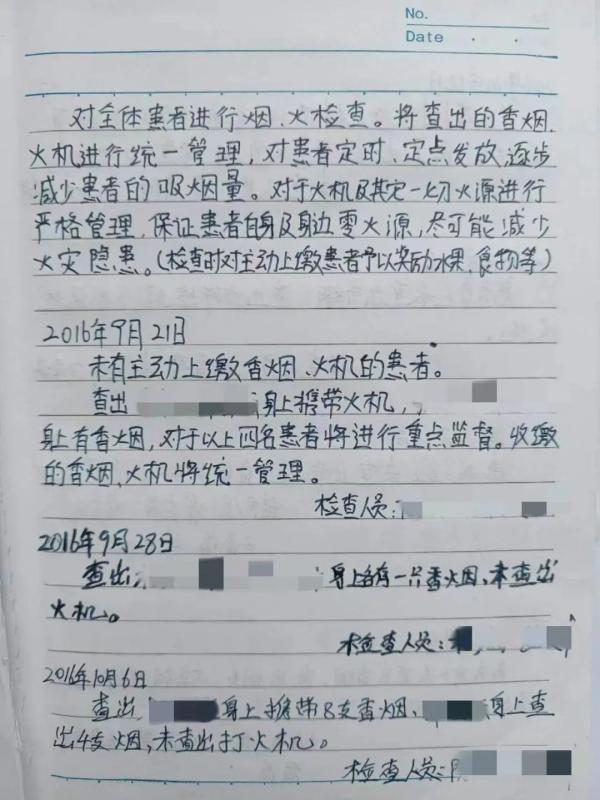 No.
Date . .
对全体患者进行烟、火检查。将查出的香烟、
火机进行统一管理,对患者定时、定点发放,逐步
减少患者的吸烟量。对于火机及其它一切火源进行
严格管理,保证患者自身及身边零火源,尽可能减少
火灾隐患。(检查时对主动上缴患者予以奖励水果、食物等)
2016年9月21日
未有主动上缴香烟、火机的患者。
查出 身上携带火机,
身上有香烟,对于以上四名患者将进行重点监督。收缴
的香烟、火机将统一管理。
检查人员:
2016年9月28日
查出 身上各有一片香烟、未查出
火机。
检查人员:
2016年10月6日
查出 身上携带8支香烟、 身上查
出4支烟,未查出打火机。
检查人员: